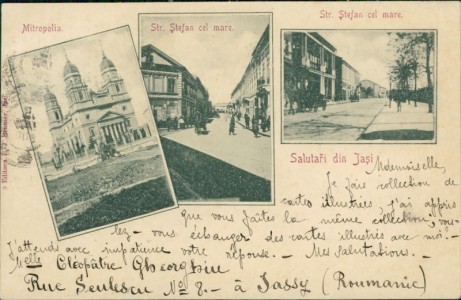 Mitropolia.
Str. Ştefan cel mare.
Str. Ştefan cel mare.
Salutări din Jaşi
Mademoiselle,
Je fais collection de
cartes illustrées, j'ai appris
que vous faites la même collection, vou-
lez-vous échanger des cartes illustrés avec moi? -
J'attends avec impatience votre réponse. - Mes salutations. -
Melle Cléopâtre Gheorghiu
Rue Seulescu No 8. - à Jassy (Roumanie)